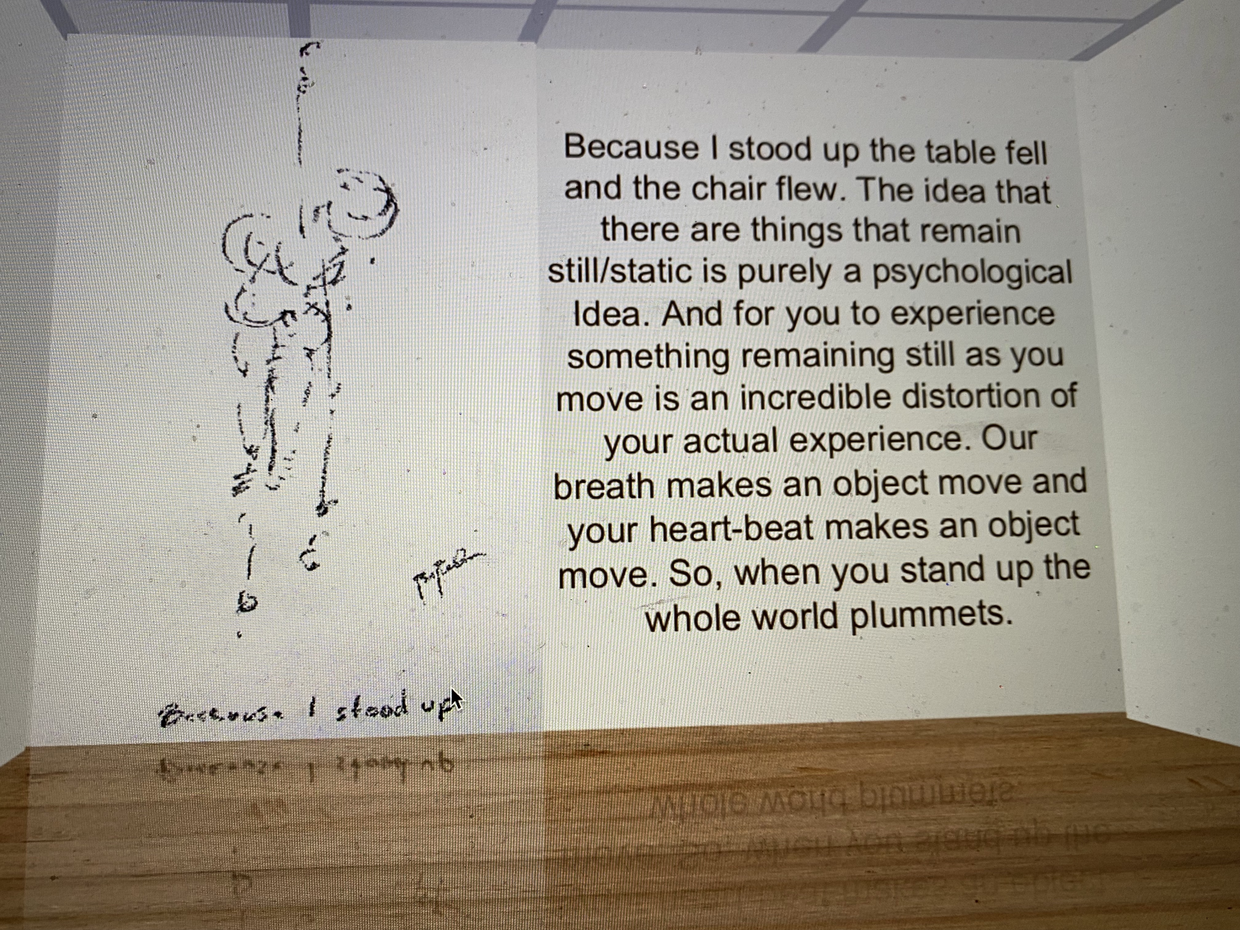 Because I stood up
Because I stood up the table fell
and the chair flew. The idea that
there are things that remain
still/static is purely a psychological
Idea. And for you to experience
something remaining still as you
move is an incredible distortion of
your actual experience. Our
breath makes an object move and
your heart-beat makes an object
move. So, when you stand up the
whole world plummets.